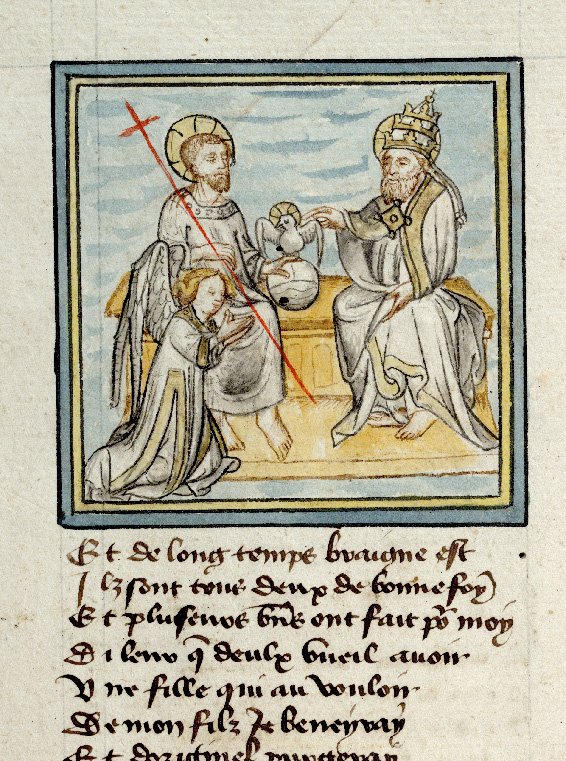 Et de long temps braigne est
Ilz sont tous deux de bonne foy
Et pluseurs bñs ont fait po͂ moy
Di leur q̃ deulx vueil avoir
Une fille qui au vouloir
De mon filz Je beneyray
Et doriginel purgeray